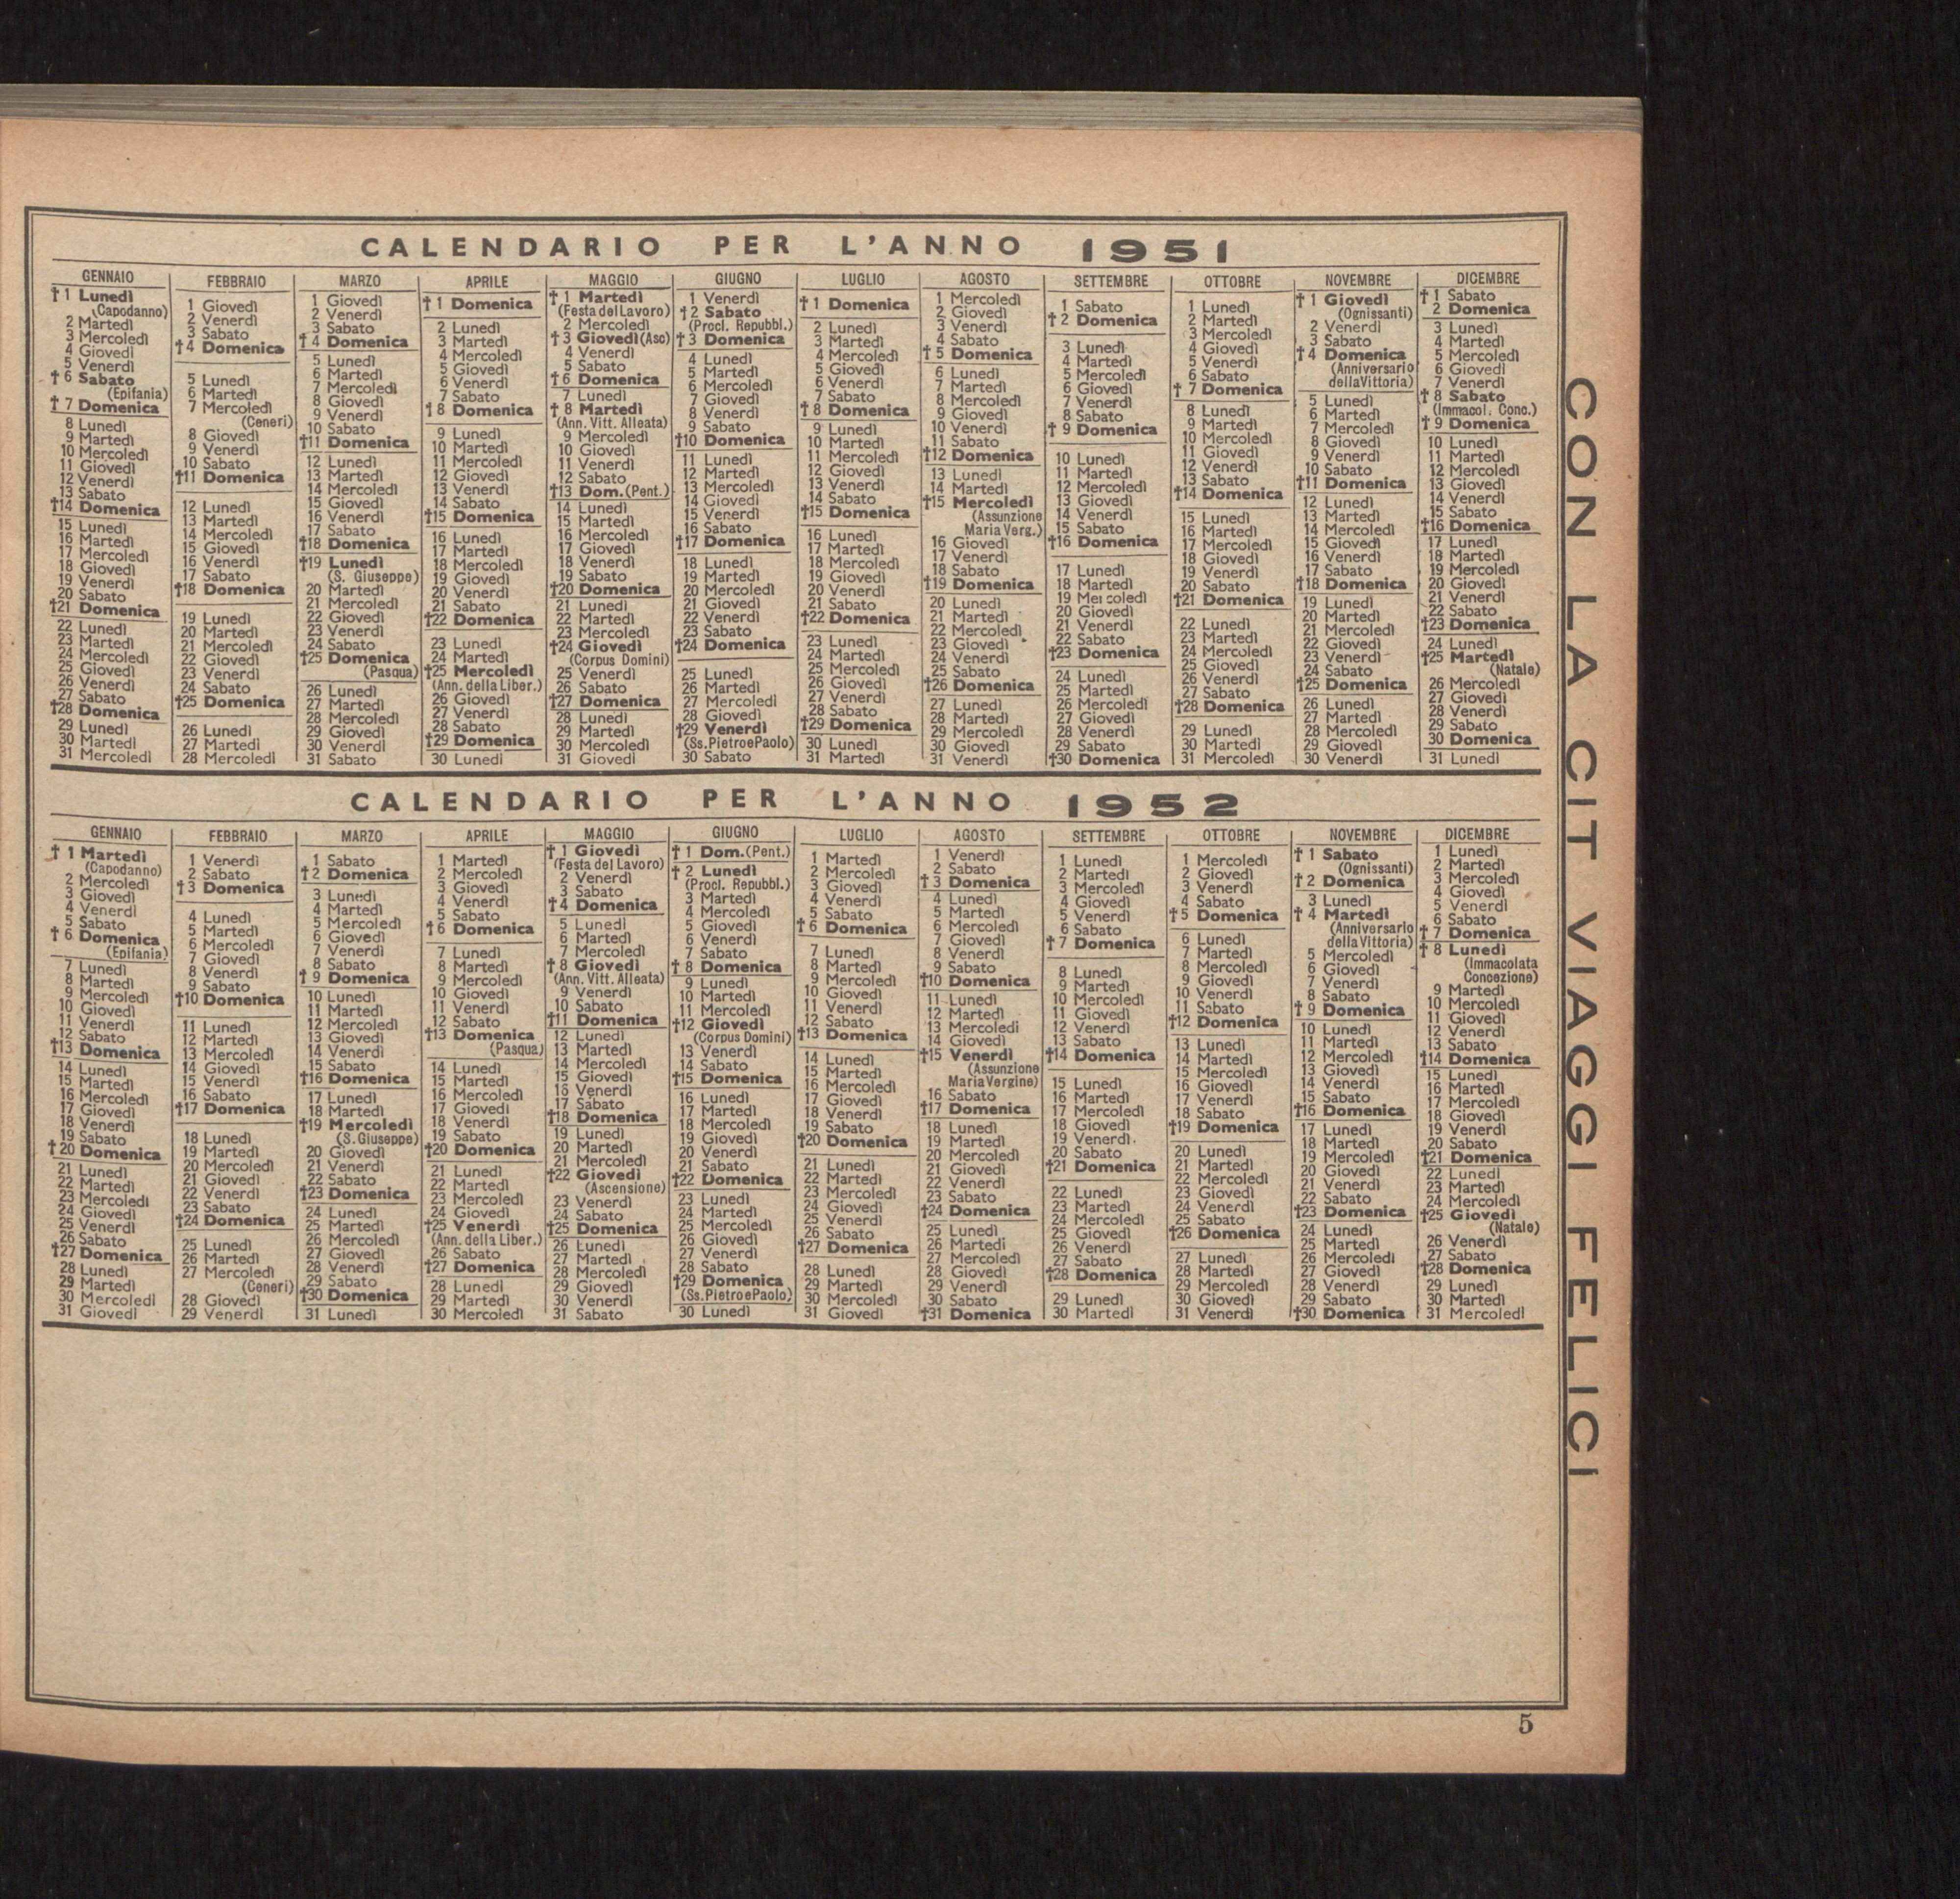 CALENDARIO PER L'ANNO 1951
GENNAIO
† 1 Lunedì
(Capodanno)
2 Martedì
3 Mercoledì
4 Giovedì
5 Venerdì
† 6 Sabato
(Epifania)
† 7 Domenica
8 Lunedì
9 Martedì
10 Mercoledì
11 Giovedì
12 Venerdì
13 Sabato
†14 Domenica
15 Lunedì
16 Martedì
17 Mercoledì
18 Giovedì
19 Venerdì
20 Sabato
†21 Domenica
22 Lunedì
23 Martedì
24 Mercoledì
25 Giovedì
26 Venerdì
27 Sabato
†28 Domenica
29 Lunedì
30 Martedì
31 Mercoledì
FEBBRAIO
1 Giovedì
2 Venerdì
3 Sabato
† 4 Domenica
5 Lunedì
6 Martedì
7 Mercoledì
(Ceneri)
8 Giovedì
9 Venerdì
10 Sabato
†11 Domenica
12 Lunedì
13 Martedì
14 Mercoledì
15 Giovedì
16 Venerdì
17 Sabato
†18 Domenica
19 Lunedì
20 Martedì
21 Mercoledì
22 Giovedì
23 Venerdì
24 Sabato
†25 Domenica
26 Lunedì
27 Martedì
28 Mercoledì
MARZO
1 Giovedì
2 Venerdì
3 Sabato
† 4 Domenica
5 Lunedì
6 Martedì
7 Mercoledì
8 Giovedì
9 Venerdì
10 Sabato
†11 Domenica
12 Lunedì
13 Martedì
14 Mercoledì
15 Giovedì
16 Venerdì
17 Sabato
†18 Domenica
†19 Lunedì
(S. Giuseppe)
20 Martedì
21 Mercoledì
22 Giovedì
23 Venerdì
24 Sabato
†25 Domenica
(Pasqua)
26 Lunedì
27 Martedì
28 Mercoledì
29 Giovedì
30 Venerdì
31 Sabato
APRILE
† 1 Domenica
2 Lunedì
3 Martedì
4 Mercoledì
5 Giovedì
6 Venerdì
7 Sabato
†8 Domenica
9 Lunedì
10 Martedì
11 Mercoledì
12 Giovedì
13 Venerdì
14 Sabato
†15 Domenica
16 Lunedì
17 Martedì
18 Mercoledì
19 Giovedì
20 Venerdì
21 Sabato
†22 Domenica
23 Lunedì
24 Martedì
†25 Mercoledì
(Ann. della Liber.)
26 Giovedì
27 Venerdì
28 Sabato
†29 Domenica
30 Lunedì
MAGGIO
† 1 Martedì
(Festa del Lavoro)
2 Mercoledì
† 3 Giovedì (Asc)
4 Venerdì
5 Sabato
†6 Domenica
7 Lunedì
† 8 Martedì
(Ann. Vitt. Alleata)
9 Mercoledì
10 Giovedì
11 Venerdì
12 Sabato
†13 Dom. (Pent.)
14 Lunedì
15 Martedì
16 Mercoledì
17 Giovedì
18 Venerdì
19 Sabato
†20 Domenica
21 Lunedì
22 Martedì
23 Mercoledì
†24 Giovedì
(Corpus Domini)
25 Venerdì
26 Sabato
†27 Domenica
28 Lunedì
29 Martedì
30 Mercoledì
31 Giovedì
GIUGNO
1 Venerdì
†2 Sabato
(Procl. Repubbl.)
† 3 Domenica
4 Lunedì
5 Martedì
6 Mercoledì
7 Giovedì
8 Venerdì
9 Sabato
†10 Domenica
11 Lunedì
12 Martedì
13 Mercoledì
14 Giovedì
15 Venerdì
16 Sabato
†17 Domenica
18 Lunedì
19 Martedì
20 Mercoledì
21 Giovedì
22 Venerdì
23 Sabato
†24 Domenica
25 Lunedì
26 Martedì
27 Mercoledì
28 Giovedì
†29 Venerdì
(Ss. Pietro e Paolo)
30 Sabato
LUGLIO
† 1 Domenica
2 Lunedì
3 Martedì
4 Mercoledì
5 Giovedì
6 Venerdì
7 Sabato
† 8 Domenica
9 Lunedì
10 Martedì
11 Mercoledì
12 Giovedì
13 Venerdì
14 Sabato
†15 Domenica
16 Lunedì
17 Martedì
18 Mercoledì
19 Giovedì
20 Venerdì
21 Sabato
†22 Domenica
23 Lunedì
24 Martedì
25 Mercoledì
26 Giovedì
27 Venerdì
28 Sabato
†29 Domenica
30 Lunedì
31 Martedì
AGOSTO
1 Mercoledì
2 Giovedì
3 Venerdì
4 Sabato
† 5 Domenica
6 Lunedì
7 Martedì
8 Mercoledì
9 Giovedì
10 Venerdì
11 Sabato
†12 Domenica
13 Lunedì
14 Martedì
†15 Mercoledì
(Assunzione
Maria Verg.)
16 Giovedì
17 Venerdì
18 Sabato
†19 Domenica
20 Lunedì
21 Martedì
22 Mercoledì
23 Giovedì
24 Venerdì
25 Sabato
†26 Domenica
27 Lunedì
28 Martedì
29 Mercoledì
30 Giovedì
31 Venerdì
SETTEMBRE
1 Sabato
† 2 Domenica
3 Lunedì
4 Martedì
5 Mercoledì
6 Giovedì
7 Venerdì
8 Sabato
† 9 Domenica
10 Lunedì
11 Martedì
12 Mercoledì
13 Giovedì
14 Venerdì
15 Sabato
†16 Domenica
17 Lunedì
18 Martedì
19 Mercoledì
20 Giovedì
21 Venerdì
22 Sabato
†23 Domenica
24 Lunedì
25 Martedì
26 Mercoledì
27 Giovedì
28 Venerdì
29 Sabato
†30 Domenica
OTTOBRE
1 Lunedì
2 Martedì
3 Mercoledì
4 Giovedì
5 Venerdì
6 Sabato
† 7 Domenica
8 Lunedì
9 Martedì
10 Mercoledì
11 Giovedì
12 Venerdì
13 Sabato
†14 Domenica
15 Lunedì
16 Martedì
17 Mercoledì
18 Giovedì
19 Venerdì
20 Sabato
†21 Domenica
22 Lunedì
23 Martedì
24 Mercoledì
25 Giovedì
26 Venerdì
27 Sabato
†28 Domenica
29 Lunedì
30 Martedì
31 Mercoledì
NOVEMBRE
† 1 Giovedì
(Ognissanti)
2 Venerdì
3 Sabato
†4 Domenica
(Anniversario
della Vittoria)
5 Lunedì
6 Martedì
7 Mercoledì
8 Giovedì
9 Venerdì
10 Sabato
†11 Domenica
12 Lunedì
13 Martedì
14 Mercoledì
15 Giovedì
16 Venerdì
17 Sabato
†18 Domenica
19 Lunedì
20 Martedì
21 Mercoledì
22 Giovedì
23 Venerdì
24 Sabato
†25 Domenica
26 Lunedì
27 Martedì
28 Mercoledì
29 Giovedì
30 Venerdì
DICEMBRE
† 1 Sabato
2 Domenica
3 Lunedì
4 Martedì
5 Mercoledì
6 Giovedì
7 Venerdì
† 8 Sabato
(Immacol. Conc.)
† 9 Domenica
10 Lunedì
11 Martedì
12 Mercoledì
13 Giovedì
14 Venerdì
15 Sabato
†16 Domenica
17 Lunedì
18 Martedì
19 Mercoledì
20 Giovedì
21 Venerdì
22 Sabato
†23 Domenica
24 Lunedì
†25 Martedì
(Natale)
26 Mercoledì
27 Giovedì
28 Venerdì
29 Sabato
30 Domenica
31 Lunedì
CALENDARIO PER L'ANNO 1952
GENNAIO
† 1 Martedì
(Capodanno)
2 Mercoledì
3 Giovedì
4 Venerdì
5 Sabato
† 6 Domenica
(Epifania)
7 Lunedì
8 Martedì
9 Mercoledì
10 Giovedì
11 Venerdì
12 Sabato
†13 Domenica
14 Lunedì
15 Martedì
16 Mercoledì
17 Giovedì
18 Venerdì
19 Sabato
†20 Domenica
21 Lunedì
22 Martedì
23 Mercoledì
24 Giovedì
25 Venerdì
26 Sabato
†27 Domenica
28 Lunedì
29 Martedì
30 Mercoledì
31 Giovedì
FEBBRAIO
1 Venerdì
2 Sabato
†3 Domenica
4 Lunedì
5 Martedì
6 Mercoledì
7 Giovedì
8 Venerdì
9 Sabato
†10 Domenica
11 Lunedì
12 Martedì
13 Mercoledì
14 Giovedì
15 Venerdì
16 Sabato
†17 Domenica
18 Lunedì
19 Martedì
20 Mercoledì
21 Giovedì
22 Venerdì
23 Sabato
†24 Domenica
25 Lunedì
26 Martedì
27 Mercoledì
(Ceneri)
28 Giovedì
29 Venerdì
MARZO
1 Sabato
† 2 Domenica
3 Lunedì
4 Martedì
5 Mercoledì
6 Giovedì
7 Venerdì
8 Sabato
† 9 Domenica
10 Lunedì
11 Martedì
12 Mercoledì
13 Giovedì
14 Venerdì
15 Sabato
†16 Domenica
17 Lunedì
18 Martedì
†19 Mercoledì
(S. Giuseppe)
20 Giovedì
21 Venerdì
22 Sabato
†23 Domenica
24 Lunedì
25 Martedì
26 Mercoledì
27 Giovedì
28 Venerdì
29 Sabato
†30 Domenica
31 Lunedì
APRILE
1 Martedì
2 Mercoledì
3 Giovedì
4 Venerdì
5 Sabato
† 6 Domenica
7 Lunedì
8 Martedì
9 Mercoledì
10 Giovedì
11 Venerdì
12 Sabato
†13 Domenica
(Pasqua)
14 Lunedì
15 Martedì
16 Mercoledì
17 Giovedì
18 Venerdì
19 Sabato
†20 Domenica
21 Lunedì
22 Martedì
23 Mercoledì
24 Giovedì
†25 Venerdì
(Ann. della Liber.)
26 Sabato
†27 Domenica
28 Lunedì
29 Martedì
30 Mercoledì
MAGGIO
† 1 Giovedì
(Festa del Lavoro)
2 Venerdì
3 Sabato
† 4 Domenica
5 Lunedì
6 Martedì
7 Mercoledì
† 8 Giovedì
(Ann. Vitt. Alleata)
9 Venerdì
10 Sabato
†11 Domenica
12 Lunedì
13 Martedì
14 Mercoledì
15 Giovedì
16 Venerdì
17 Sabato
†18 Domenica
19 Lunedì
20 Martedì
21 Mercoledì
†22 Giovedì
(Ascensione)
23 Venerdì
24 Sabato
†25 Domenica
26 Lunedì
27 Martedì
28 Mercoledì
29 Giovedì
30 Venerdì
31 Sabato
GIUGNO
† 1 Dom. (Pent.)
† 2 Lunedì
(Procl. Repubbl.)
3 Martedì
4 Mercoledì
5 Giovedì
6 Venerdì
7 Sabato
† 8 Domenica
9 Lunedì
10 Martedì
11 Mercoledì
†12 Giovedì
(Corpus Domini)
13 Venerdì
14 Sabato
†15 Domenica
16 Lunedì
17 Martedì
18 Mercoledì
19 Giovedì
20 Venerdì
21 Sabato
†22 Domenica
23 Lunedì
24 Martedì
25 Mercoledì
26 Giovedì
27 Venerdì
28 Sabato
†29 Domenica
(Ss. Pietro e Paolo)
30 Lunedì
LUGLIO
1 Martedì
2 Mercoledì
3 Giovedì
4 Venerdì
5 Sabato
† 6 Domenica
7 Lunedì
8 Martedì
9 Mercoledì
10 Giovedì
11 Venerdì
12 Sabato
†13 Domenica
14 Lunedì
15 Martedì
16 Mercoledì
17 Giovedì
18 Venerdì
19 Sabato
†20 Domenica
21 Lunedì
22 Martedì
23 Mercoledì
24 Giovedì
25 Venerdì
26 Sabato
†27 Domenica
28 Lunedì
29 Martedì
30 Mercoledì
31 Giovedì
AGOSTO
1 Venerdì
2 Sabato
† 3 Domenica
4 Lunedì
5 Martedì
6 Mercoledì
7 Giovedì
8 Venerdì
9 Sabato
†10 Domenica
11 Lunedì
12 Martedì
13 Mercoledì
14 Giovedì
†15 Venerdì
(Assunzione
Maria Vergine)
16 Sabato
†17 Domenica
18 Lunedì
19 Martedì
20 Mercoledì
21 Giovedì
22 Venerdì
23 Sabato
†24 Domenica
25 Lunedì
26 Martedì
27 Mercoledì
28 Giovedì
29 Venerdì
30 Sabato
†31 Domenica
SETTEMBRE
1 Lunedì
2 Martedì
3 Mercoledì
4 Giovedì
5 Venerdì
6 Sabato
† 7 Domenica
8 Lunedì
9 Martedì
10 Mercoledì
11 Giovedì
12 Venerdì
13 Sabato
†14 Domenica
15 Lunedì
16 Martedì
17 Mercoledì
18 Giovedì
19 Venerdì
20 Sabato
†21 Domenica
22 Lunedì
23 Martedì
24 Mercoledì
25 Giovedì
26 Venerdì
27 Sabato
†28 Domenica
29 Lunedì
30 Martedì
OTTOBRE
1 Mercoledì
2 Giovedì
3 Venerdì
4 Sabato
† 5 Domenica
6 Lunedì
7 Martedì
8 Mercoledì
9 Giovedì
10 Venerdì
11 Sabato
†12 Domenica
13 Lunedì
14 Martedì
15 Mercoledì
16 Giovedì
17 Venerdì
18 Sabato
†19 Domenica
20 Lunedì
21 Martedì
22 Mercoledì
23 Giovedì
24 Venerdì
25 Sabato
†26 Domenica
27 Lunedì
28 Martedì
29 Mercoledì
30 Giovedì
31 Venerdì
NOVEMBRE
† 1 Sabato
(Ognissanti)
† 2 Domenica
3 Lunedì
† 4 Martedì
(Anniversario
della Vittoria)
5 Mercoledì
6 Giovedì
7 Venerdì
8 Sabato
† 9 Domenica
10 Lunedì
11 Martedì
12 Mercoledì
13 Giovedì
14 Venerdì
15 Sabato
†16 Domenica
17 Lunedì
18 Martedì
19 Mercoledì
20 Giovedì
21 Venerdì
22 Sabato
†23 Domenica
24 Lunedì
25 Martedì
26 Mercoledì
27 Giovedì
28 Venerdì
29 Sabato
†30 Domenica
DICEMBRE
1 Lunedì
2 Martedì
3 Mercoledì
4 Giovedì
5 Venerdì
6 Sabato
† 7 Domenica
† 8 Lunedì
(Immacolata
Concezione)
9 Martedì
10 Mercoledì
11 Giovedì
12 Venerdì
13 Sabato
†14 Domenica
15 Lunedì
16 Martedì
17 Mercoledì
18 Giovedì
19 Venerdì
20 Sabato
†21 Domenica
22 Lunedì
23 Martedì
24 Mercoledì
†25 Giovedì
(Natale)
26 Venerdì
27 Sabato
†28 Domenica
29 Lunedì
30 Martedì
31 Mercoledì
CON LA CIT VIAGGI FELICI
5